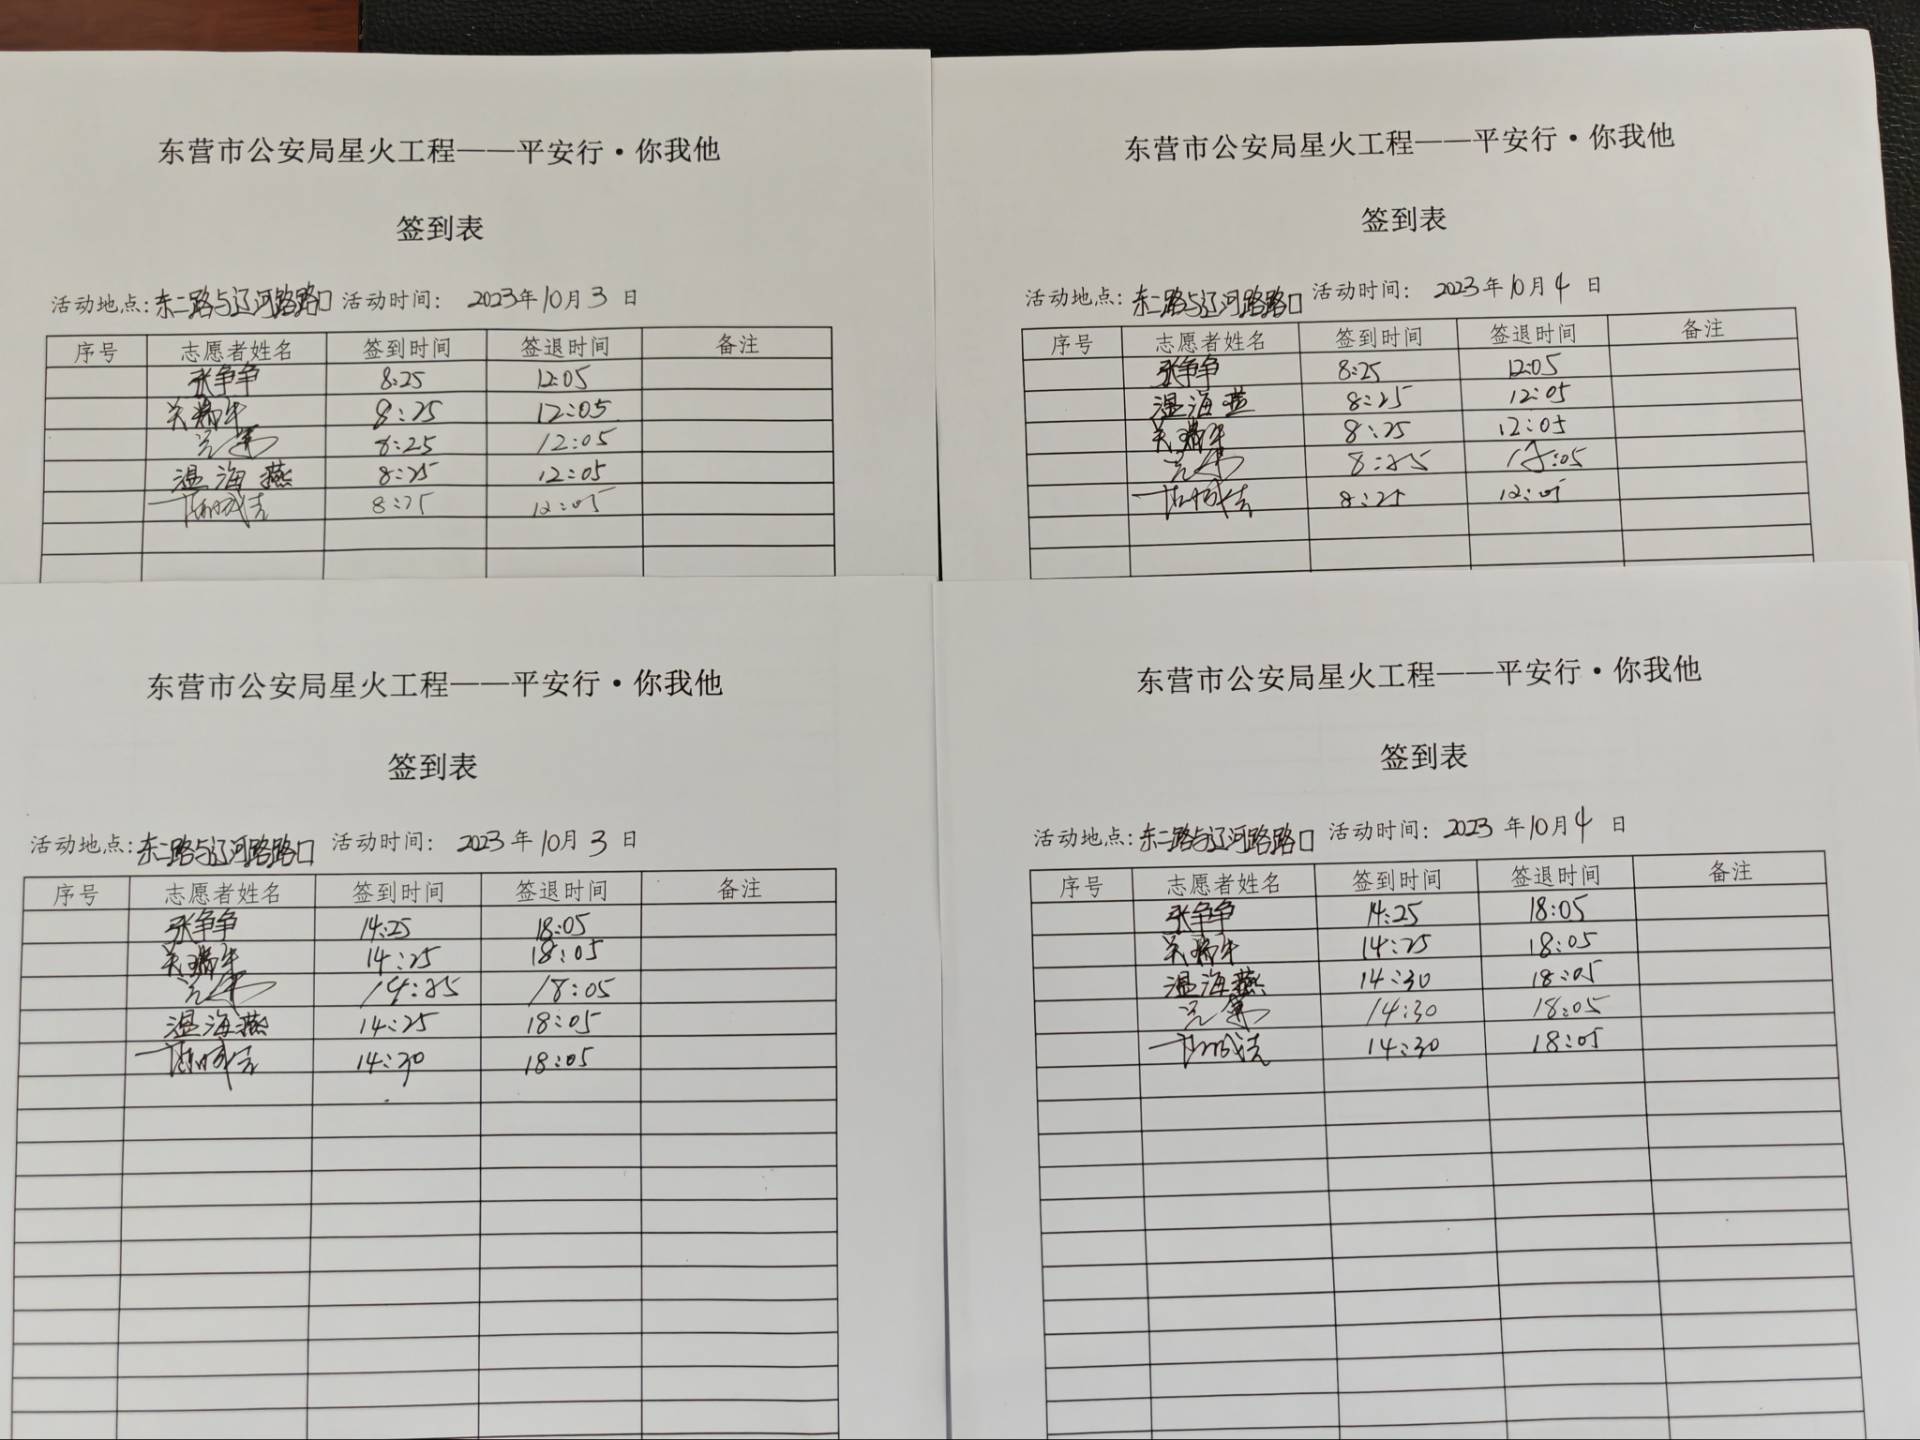 东营市公安局星火工程——平安行·你我他
签到表
活动地点:东二路与辽河路路口 活动时间: 2023年10月3日
序号 志愿者姓名 签到时间 签退时间 备注
张争争 8:25 12:05
8:25 12:05
8:25 12:05
温海燕 8:25 12:05
8:25 12:05
东营市公安局星火工程——平安行·你我他
签到表
活动地点:东二路与辽河路路口 活动时间: 2023年10月4日
序号 志愿者姓名 签到时间 签退时间 备注
张争争 8:25 12:05
温海燕 8:25 12:05
8:25 12:05
8:25 12:05
8:25 12:05
东营市公安局星火工程——平安行·你我他
签到表
活动地点:东二路与辽河路路口 活动时间: 2023年10月3日
序号 志愿者姓名 签到时间 签退时间 备注
张争争 14:25 18:05
14:25 18:05
14:25 18:05
温海燕 14:25 18:05
14:30 18:05
东营市公安局星火工程——平安行·你我他
签到表
活动地点:东二路与辽河路路口 活动时间: 2023年10月4日
序号 志愿者姓名 签到时间 签退时间 备注
张争争 14:25 18:05
14:25 18:05
温海燕 14:30 18:05
14:30 18:05
14:30 18:05